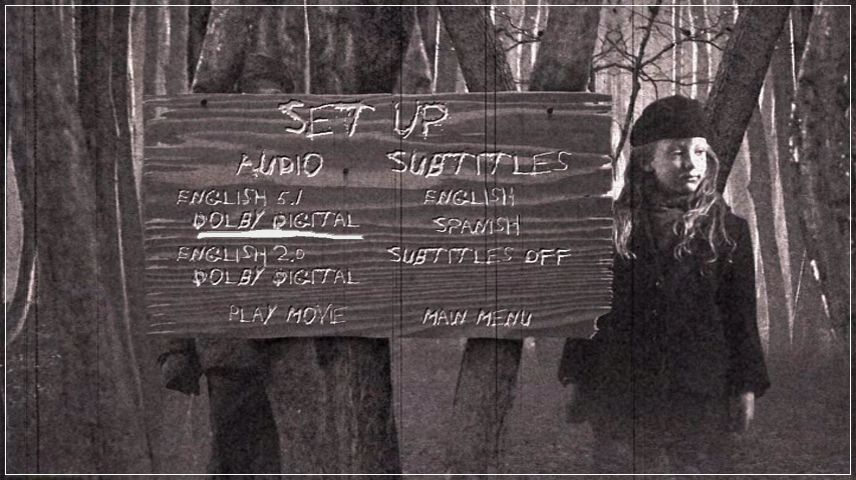 SET UP
AUDIO
ENGLISH 5.1
DOLBY DIGITAL
ENGLISH 2.0
DOLBY DIGITAL
SUBTITLES
ENGLISH
SPANISH
SUBTITLES OFF
PLAY MOVIE
MAIN MENU